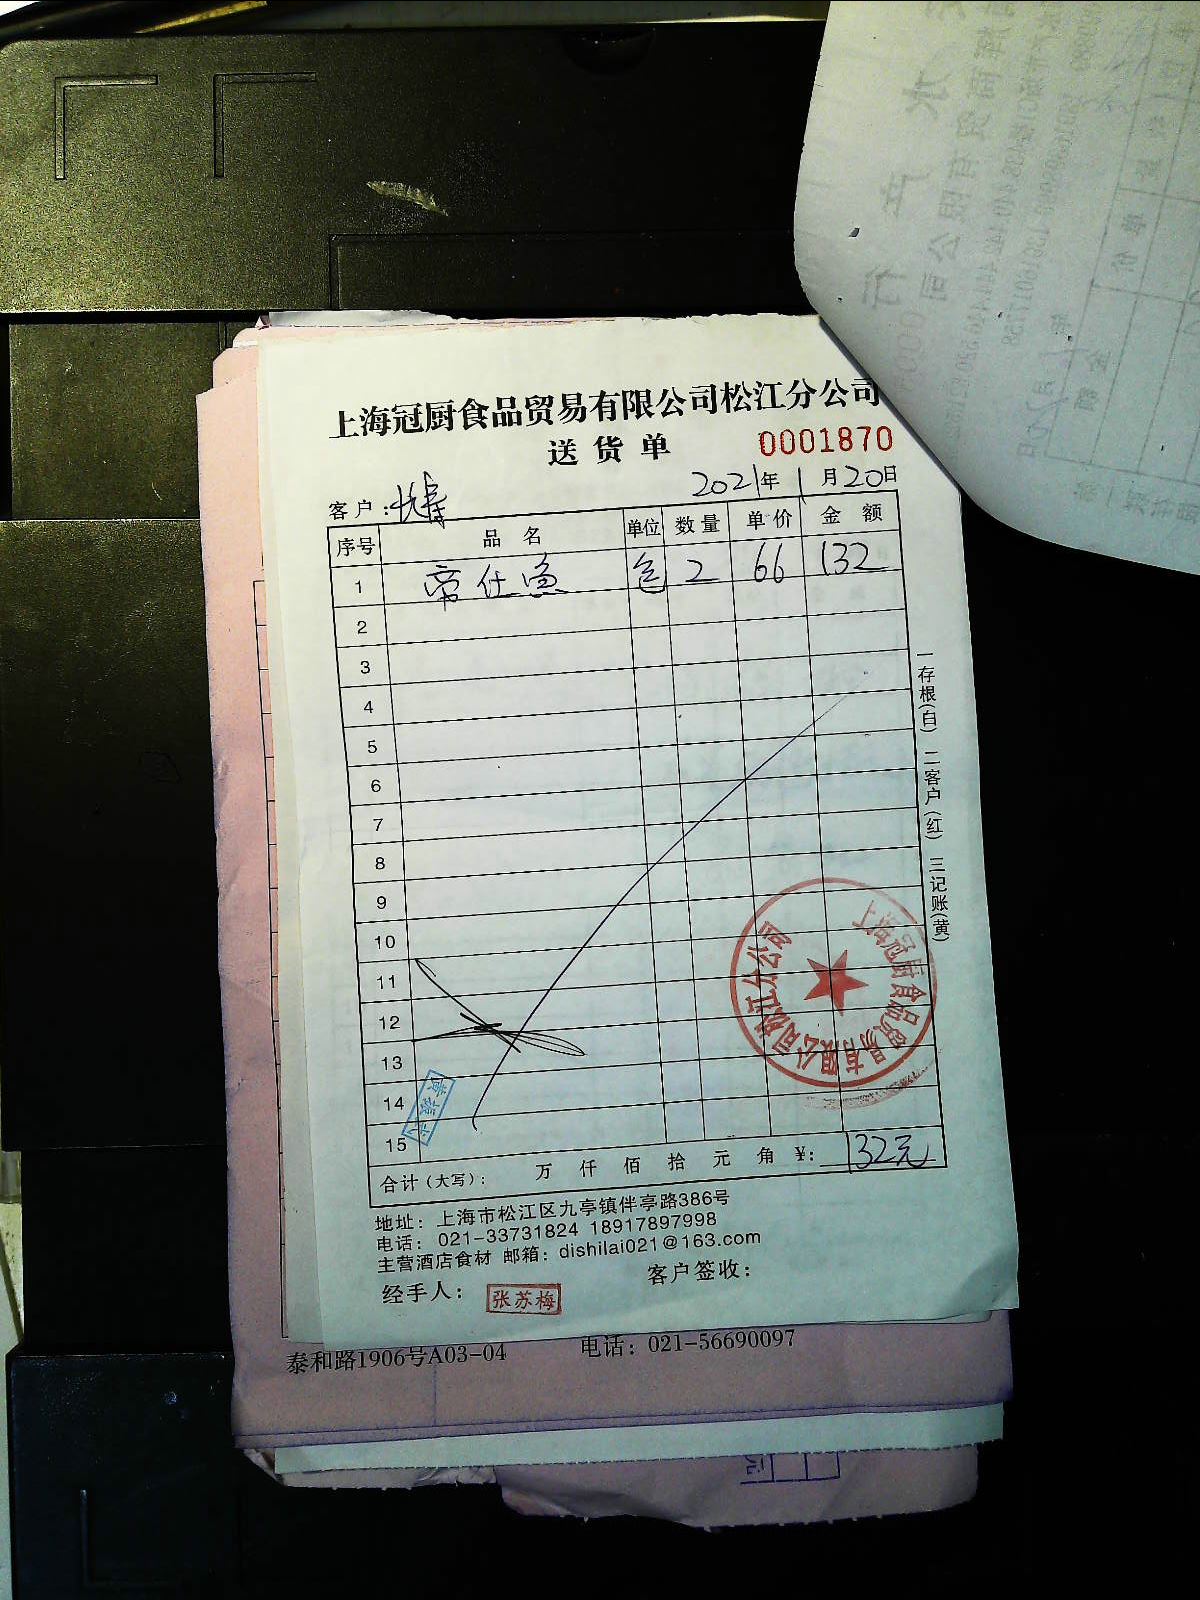 上海冠厨食品贸易有限公司松江分公司
送货单 0001870
客户: 2021年1月20日
序号 品名 单位 数量 单价 金额
1 帝仕鱼 包 2 66 132
2
3
4
5
6
7
8
9
10
11
12
13
14
15
合计(大写): 万 仟 佰 拾 元 角 ¥: 132元
地址: 上海市松江区九亭镇伴亭路386号
电话: 021-33731824 18917897998
主营酒店食材 邮箱: dishilai021@163.com
经手人: 张苏梅 客户签收:
一存根(白) 二客户(红) 三记账(黄)
上海冠厨食品贸易有限公司松江分公司
泰和路1906号A03-04 电话: 021-56690097
元